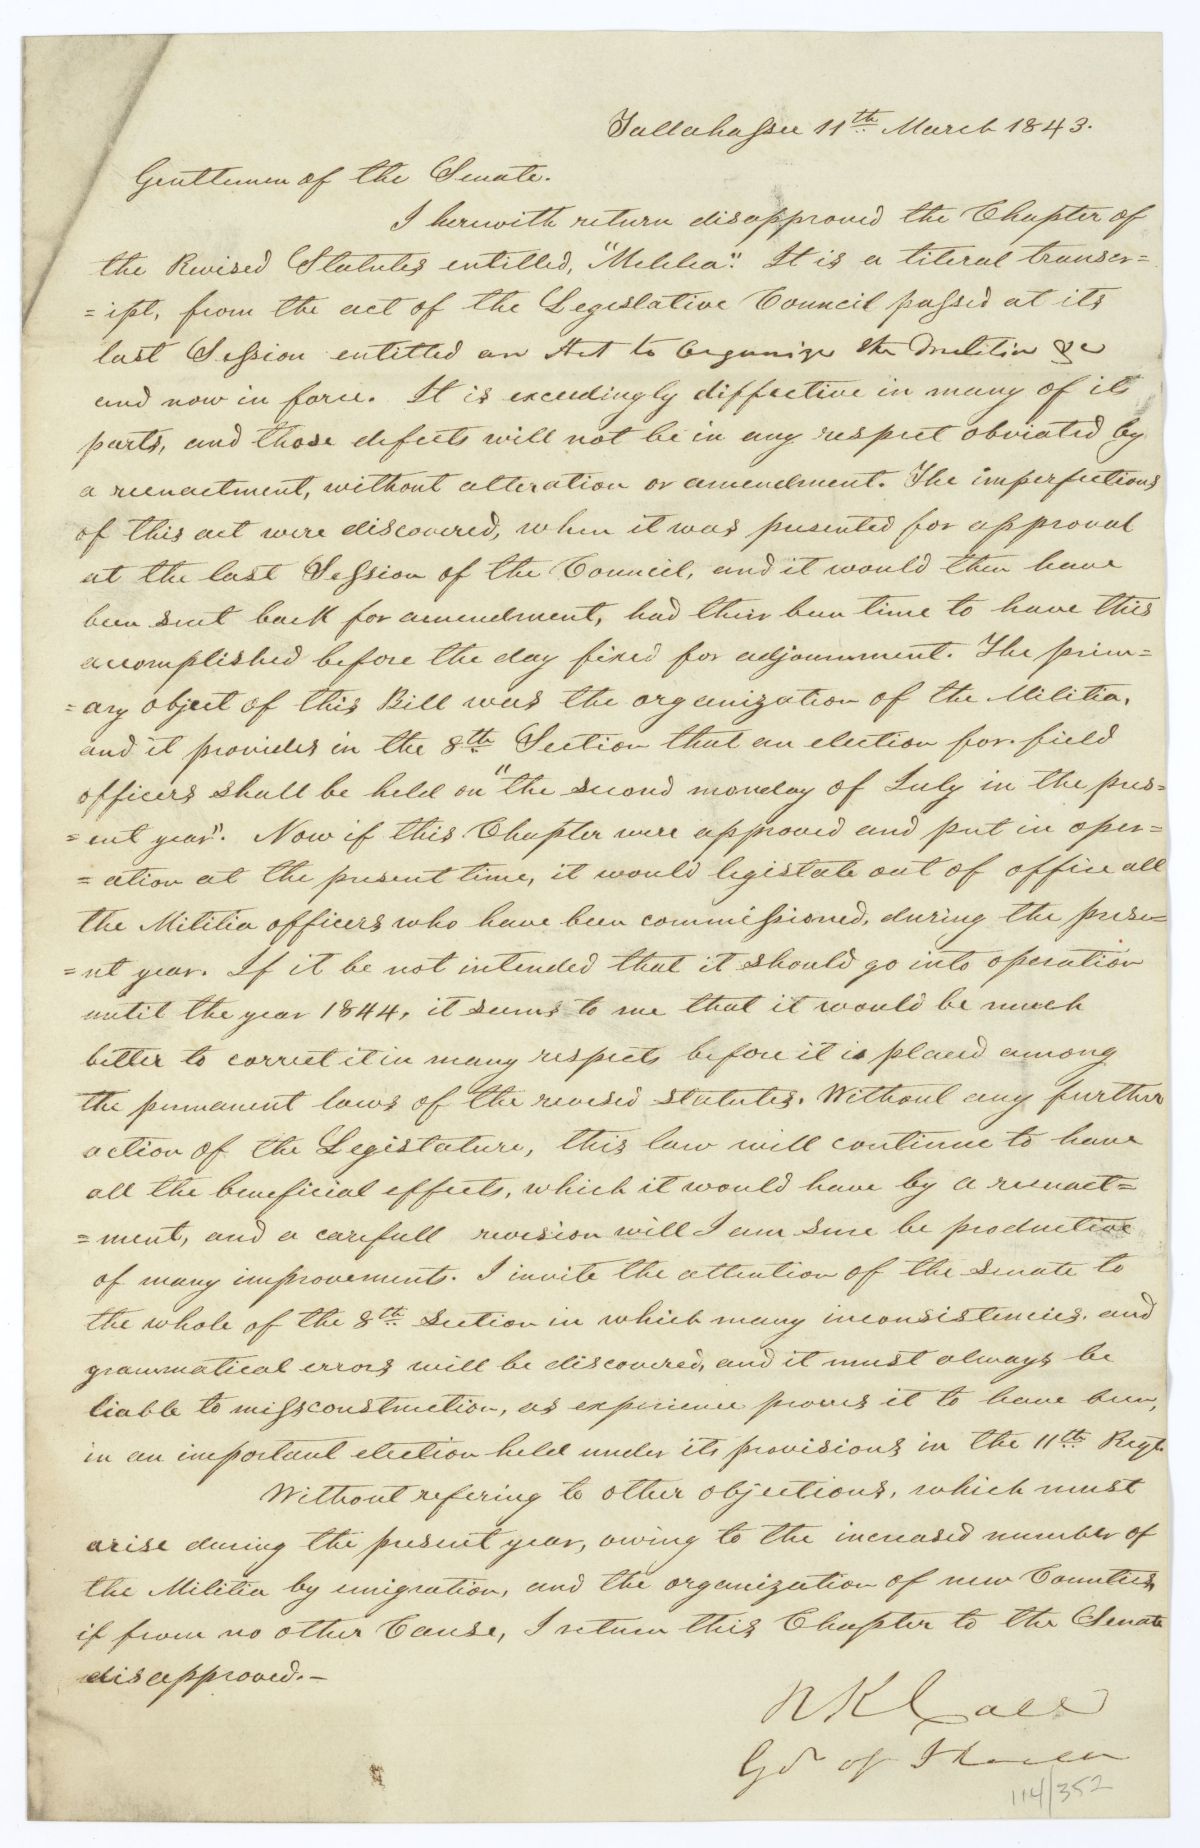 Tallahassee 11th March 1843.
Gentlemen of the Senate.
I herewith return disapproved the Chapter of
the Revised Statutes entitled, "Militia". It is a literal transcr=
=ipt, from the act of the Legislative Council passed at its
last Session entitled an Act to Organize the Militia &c
and now in force. It is exceedingly diffective in many of its
parts, and those defects will not be in any respect obviated by
a reenactment, without alteration or amendment. The imperfections
of this act were discovered, when it was presented for approval
at the last Session of the Council, and it would then have
been sent back for amendment, had their been time to have this
accomplished before the day fixed for adjournment. The prim=
=ary object of this Bill was the organization of the Militia,
and it provides in the 8th Section that an election for field
officers shall be held on "the second monday of July in the pres=
=ent year". Now if this Chapter were approved and put in oper=
=ation at the present time, it would legistate out of office all
the Militia officers who have been commissioned, during the prese=
=nt year. If it be not intended that it should go into operation
until the year 1844, it seems to me that it would be much
better to correct it in many respects before it is placed among
the permanent laws of the revised statutes. Without any further
action of the Legistature, this law will continue to have
all the beneficial effects, which it would have by a reenact=
=ment, and a carefull revision will I am sure be productive
of many improvements. I invite the attention of the Senate to
the whole of the 8th Section in which many inconsistencies, and
grammatical errors will be discovered, and it must always be
liable to missconstruction, as experience proves it to have been,
in an important election held under its provisions in the 11th Regt.
Without refering to other objections, which must
arise during the present year, owing to the increased number of
the Militia by emigration, and the organization of new Counties,
if from no other Cause, I return this Chapter to the Senate
disapproved.—
R K Call
Gov of Florida
114/352